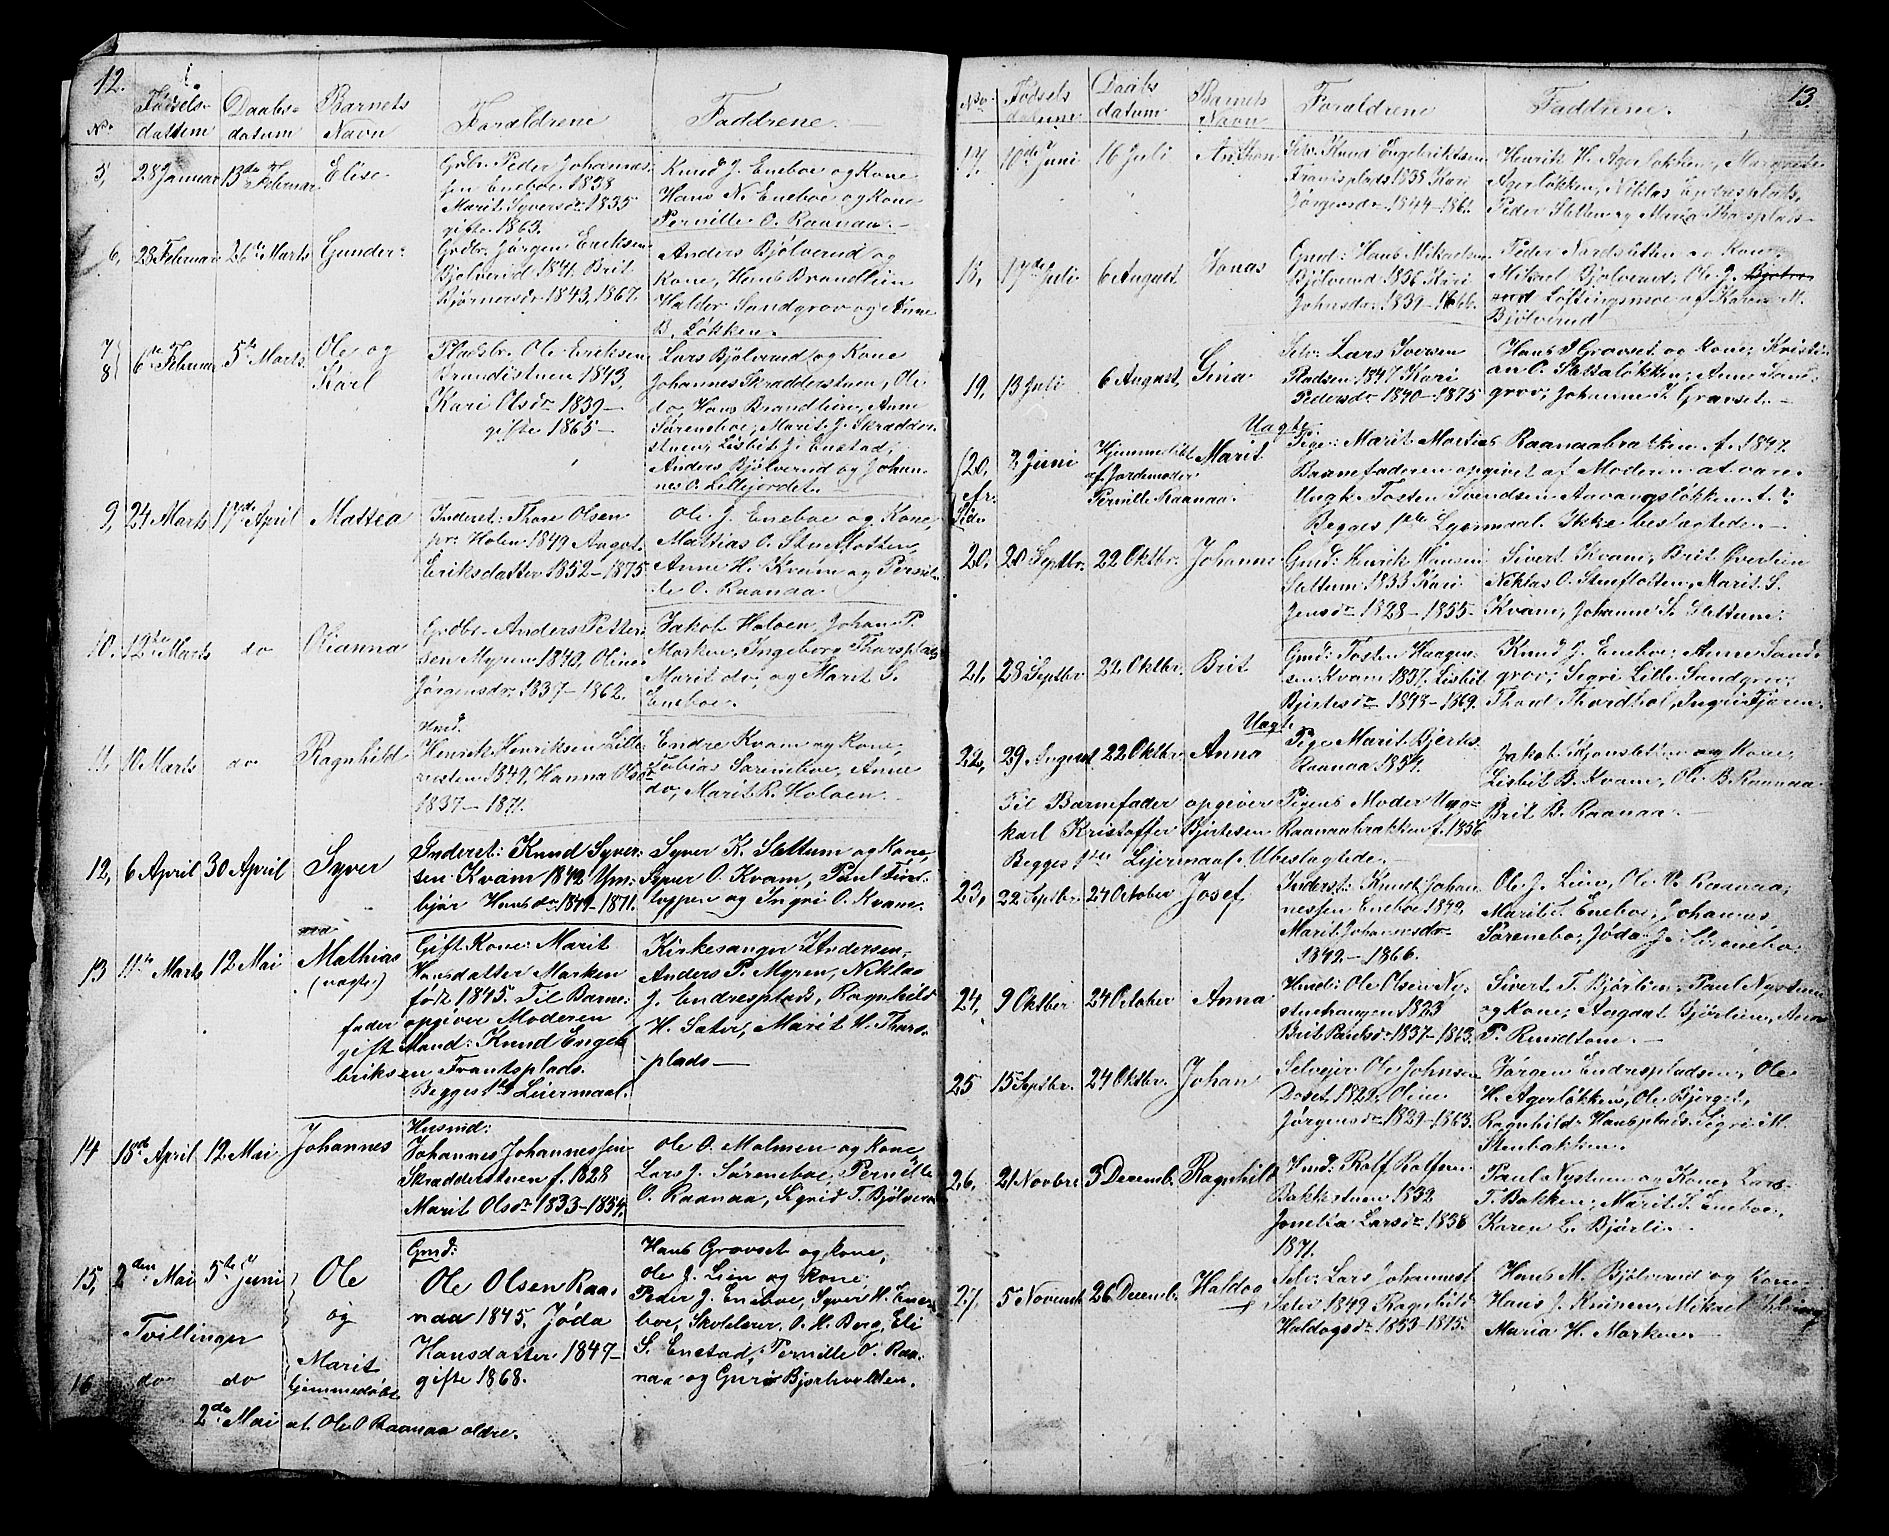 12.
No. Fødsels- dattum Daabs- datum Barnets Navn Forældrene Faddrene.
5, 28 Januar 13de Februar Elise
Grdbr. Peder Johannes-
sen Eneboe 1838
Marit Syversdr. 1835
gifte 1863.
Knud J. Eneboe og Kone
Hans N. Eneboe og Kone
Pernille O. Raanaa.
6, 28 Februar 26de Marts Gunder
Grdbr. Jørgen Eriksen
Bjølverud 1841. Brit
Bjørnersdr 1843, 1867.
Anders Bjølverud og
Kone, Hans Brandlien
Haldor Sandgrov og Anne
B. Løkken.
7 8 6te Februar 5te Marts Ole og Karl
Pladsbr. Ole Eriksen
1843,
Kari Olsdr 1839 -
gifte 1865 -
Lars Bjølverud og Kone
Johannes Skradderstuen, Ole
do, Hans Brandlien, Anne
Søreneboe, Marit J. Skradder-
stuen, Lisbit J. Enstad,
Anders Bjølverud og Johan-
nes O. Lillejordet. -
9, 24 Marts 17de April Mattea
Inderst: Thore Olsen
pr: Holen 1849 Aagot
Eriksdatter 1852 - 1875
Ole J. Eneboe og Kone,
Mattias O. Stueflotten,
Anne H. Kvam og Pernil-
le O. Raanaa
10. 12te Marts do Olianna
Grdbr. Anders Petter-
sen Mypen 1840, Oline
Jørgensdr. 1837 - 1862.
Jakob Holoen, Johan P.
Marken, Ingeborg Tharsplads
Marit do, og Marit S.
Eneboe.
11, 10 Marts do Ragnhild
Husd.
Henrik Henriksen Lille-
1849, Hanna Olsdr
1837 - 1871.
Endre Kvam og Kone,
Tobias Søreneboe, Anne
do, Marit R. Holoen.
12, 6 April 30 April Syver
Inderst: Knud Syver-
sen Kvam 1842
Hansdr 1849 - 1871.
Syver K. Slettum og Kone,
Syver O. Kvam, Paul
og Ingri O. Kvam.
13 11te Marts 12 Mai Mathias (uægte)
Gift Kone: Marit
Hansdatter Marken
født 1845. Til Barne-
fader opgiver Moderen
gift Mand: Knud Enge-
briksen Frantsplads.
Begges 1ste Leiermaal.
Kirkesanger I Andersen,
Anders P. Mypen, Niklas
J. Endresplads, Ragnhild
H. Sæter, Marit H. Thars-
plads -
14 18de April 12 Mai Johannes
Husmd:
Johannes Johannessen
Skradderstuen f. 1828
Marit Olsdr 1833 - 1854.
Ole O. Malmen og Kone
Lars J. Søreneboe, Pernille
O. Raanaa, Sigrid T. Bjølverud
15, 2den Mai 5te Juni Ole
Tvillinger og
16 do do Marit
hjemmedøbt
2de Mai af Ole O Raanaa ældre.
Gmd:
Ole Olsen Raa-
naa 1845, Jøda
Hansdatter 1847 -
gifte 1868.
Hans Gravset og Kone,
Ole J. Lien og Kone
Peder J. Eneboe, Syver H. Ene-
boe, Skolelærer O. H. Berg, Eli
S. Enstad, Pernille O. Raa-
naa og Guri Bjørhvolden.
13.
No. Fødsels datum Daabs datum Barnets Navn Forældrene Faddrene.
17, 10de Juni 16 Juli Anthon
Selv. Knud Engebriktsen
Frantsplads 1838 Kari
Jørgensdr. 1844 - 186
Henrik H. Agerløkken, Margrete
Agerløkken, Niklas Endresplads,
Peder Sletten og Maria Tharsplads -
18, 17de Juli 6 August Jonas
Gmd: Hans Mikaelsen
Bjølverud 1836 Kari
Johnsdr. 1839 - 1866.
Peder Nordsletten og Kone,
Mikael Bjølverud, Ole J.
Løftingsmoe og Karen M.
Bjølverud
19, 13 Juli 6 August, Gina
Selv: Lars Iversen
Pladsen 1847 Kari
Pedersdr 1840 - 1875
Hans J Gravset og Kone, Kristi-
an O. Slettaløkken, Anne Sand-
grov, Johanne T. Gravset. -
20, 2 Juni Hjemmedøbt af Jordemoder Pernille Raanaa. Uægte. Marit
Pige: Marit Mattias Raanaabrakken. f. 1847
Barnefaderen opgivet af Moderen at være
Ungk. Tosten Svendsen Aavangsløkken f. ?
Begges 1ste Leiermaal. Ikke beslægtede. -
20, 20 Septbr. 22 Oktbr. Johanne
Gmd: Henrik Hansen
Slettum 1833 Kari
Jensdr 1828 - 1855.
Sivert Kvam, Brit Øverlien
Niklas O. Stueflotten, Marit S.
Kvam, Johanne S. Slettum.
21, 28 Septbr 22 Oktbr. Brit
Gmd: Tosten Haagen-
sen Kvam 1837, Lisbit
Bjertesdr 1843 - 1869.
Knud J. Eneboe, Anne Sand-
grov, Sigri Lille Sandgrov,
Thord Thordhol, Ingri
22, 29 August 22 Oktbr. Uægte Anna
Pige Marit Bjerts.
Raanaa 1854.
Jakob og Kone,
Lisbit B. Kvam, Ole B. Raanaa.
Brit B. Raanaa. -
Til Barnefader opgiver Pigens Moder Unge-
karl Kristoffer Bjertesen Raanaabrakken f. 1856.
Begges 1ste Leiermaal. Ubeslægtede. -
23, 22 Septbr. 24 October Josef
Inderst: Knud Johan-
nessen Eneboe 1842,
Marit Johannesdr.
1842 - 1866.
Ole J. Lien, Ole O. Raanaa,
Marit T. Eneboe, Johannes
Søreneboe, Jøda J. Søreneboe.
24, 9 Oktber 24 October Anna
Husmd: Ole Olsen Ny-
stuehaugen 1833
Brit Paulsdr. 1837 - 1863.
Sivert T. Bjørlien, Paul Nystuen
og Kone, Aagaat Bjørlien, Anne
P. Rundtom. -
25 15 Septbr. 24 Oktbr. Johan
Selveier Ole Johnsen
1822, Oline
Jørgensdr 1829 - 1863.
Jørgen Endrespladsen, Ole
H. Agerløkken, Ole Bjerget,
Ragnhild Hansplads. Sigri M.
Stenbakken.
26, 21 Novbre 3 Decemb. Ragnhild
Husmd: Rolf Rolfsen
Bakkestuen 1832.
Jonetta Larsdr 1838
1871.
Paul Nystuen og Kone, Lars
T. Bakken, Marit T. Eneboe,
Karen L. Bjørli. -
27, 5 Novemb 26 Decemb. Haldog
Selv: Lars Johannes.
Sæter 1849 Ragnhild
Haldogsdr 1853 - 1875.
Hans M. Bjølverud og Kone
Hans J. Knipen, Mikael
Maria H. Marken. -